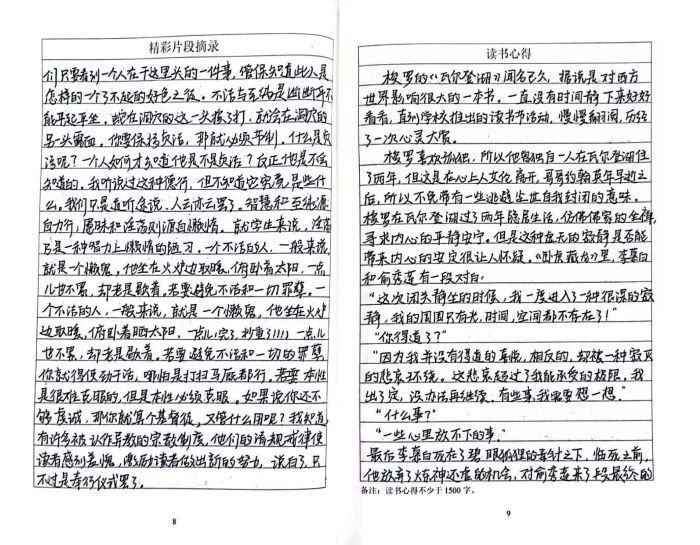 精彩片段摘录
们只要看到一个人在干这里头的一件事,管保知道此人是
怎样的一个了不起的好色之徒。不洁与圣洁是断断乎不
能平起平坐,蛇在洞穴的这一头挨了打,就会在洞穴的
另一头露面。你要保持贞洁,那就必须节制。什么是贞
洁呢?一个人如何才知道他是不是贞洁?反正他是不会
知道的。我听说过这种德行,但不知道它究竟是些什
么,我们只是道听途说,人云亦云罢了。智慧和圣洁源
自力行;愚昧和淫荡则源自懒惰。就学生来说,淫荡
乃是一种智力上懒惰的陋习。一个不洁的人,一般来说,
就是一个懒鬼,他坐在火炉边取暖,俯卧着太阳,一点
儿也不累,却老是歇着。若要避免不洁和一切罪孽。
一个不洁的人,一般来说,就是一个懒鬼,他坐在火炉
边取暖,俯卧着晒太阳,一点儿完了,抄重了!!!!)一点儿
也不累,却老是歇着。若要避免不洁和一切的罪孽
你就得使劲干活,哪怕是打扫马厩都行。若要本性
是很难克服的,但是本性必须克服。如果说你还不
够虔诚,那你就算个基督徒,又管什么用呢?我知道,
有许多被认作异教的宗教制度,他们的清规戒律使
读者感到羞愧,激励读者做出新的努力,说白了只
不过是奉行仪式罢了。
8
读书心得
梭罗的《瓦尔登湖》闻名已久,据说是对西方
世界影响很大的一本书。一直没有时间静下来好好
看看,直到学校推出的读书节活动,慢慢翻阅,历经
了一次心灵大赏。
梭罗喜欢孤独,所以他曾独自一人在瓦尔登湖住
了两年,但这是在心上人女伦离开,哥哥约翰英年早逝之
后,所以不免带有一些逃避尘世自我封闭的意味。
梭罗在瓦尔登湖过了两年隐居生活,仿佛佛家的坐禅,
寻求内心的平静安宁。但是这种虚无的寂静是否能
带来内心的安定很让人怀疑。《卧虎藏龙》里,李慕白
和俞秀莲有一段对白:
“这次闭关静坐的时候,我一度进入了一种很深的寂
静,我的周围只有光,时间,空间都不存在了!”
“你得道了?”
“因为我并没有得道的喜悦,相反的,却被一种寂灭
的悲哀环绕。这悲哀超过了我能承受的极限,我
出了定,没办法再继续。有些事,我需要想一想。”
“什么事?”
“一些心里放不下的事。”
最后李慕白死在了碧眼狐狸的毒针之下,临死之前,
他放弃了炼神还虚的机会,对俞秀莲来了段最终的
备注:读书心得不少于1500字。
9